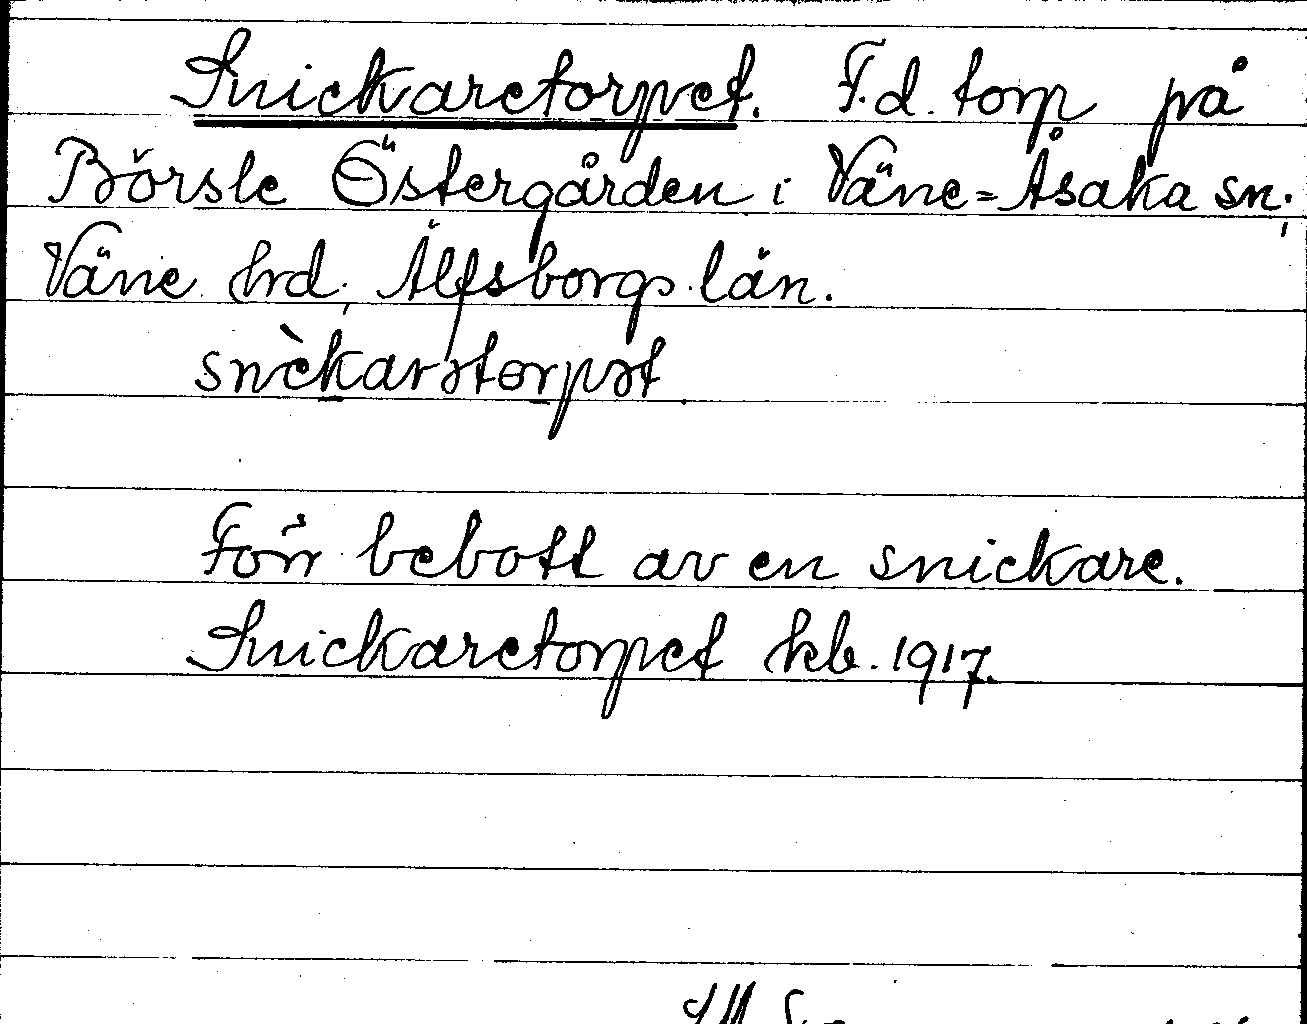 Snickaretorpet. F.d. torp på
Börsle Östergården i Väne-Åsaka sn;
Väne hrd; Älfsborgs län.
snèkarətorpət
Förr bebott av en snickare.
Snickaretorpet kb. 1917.